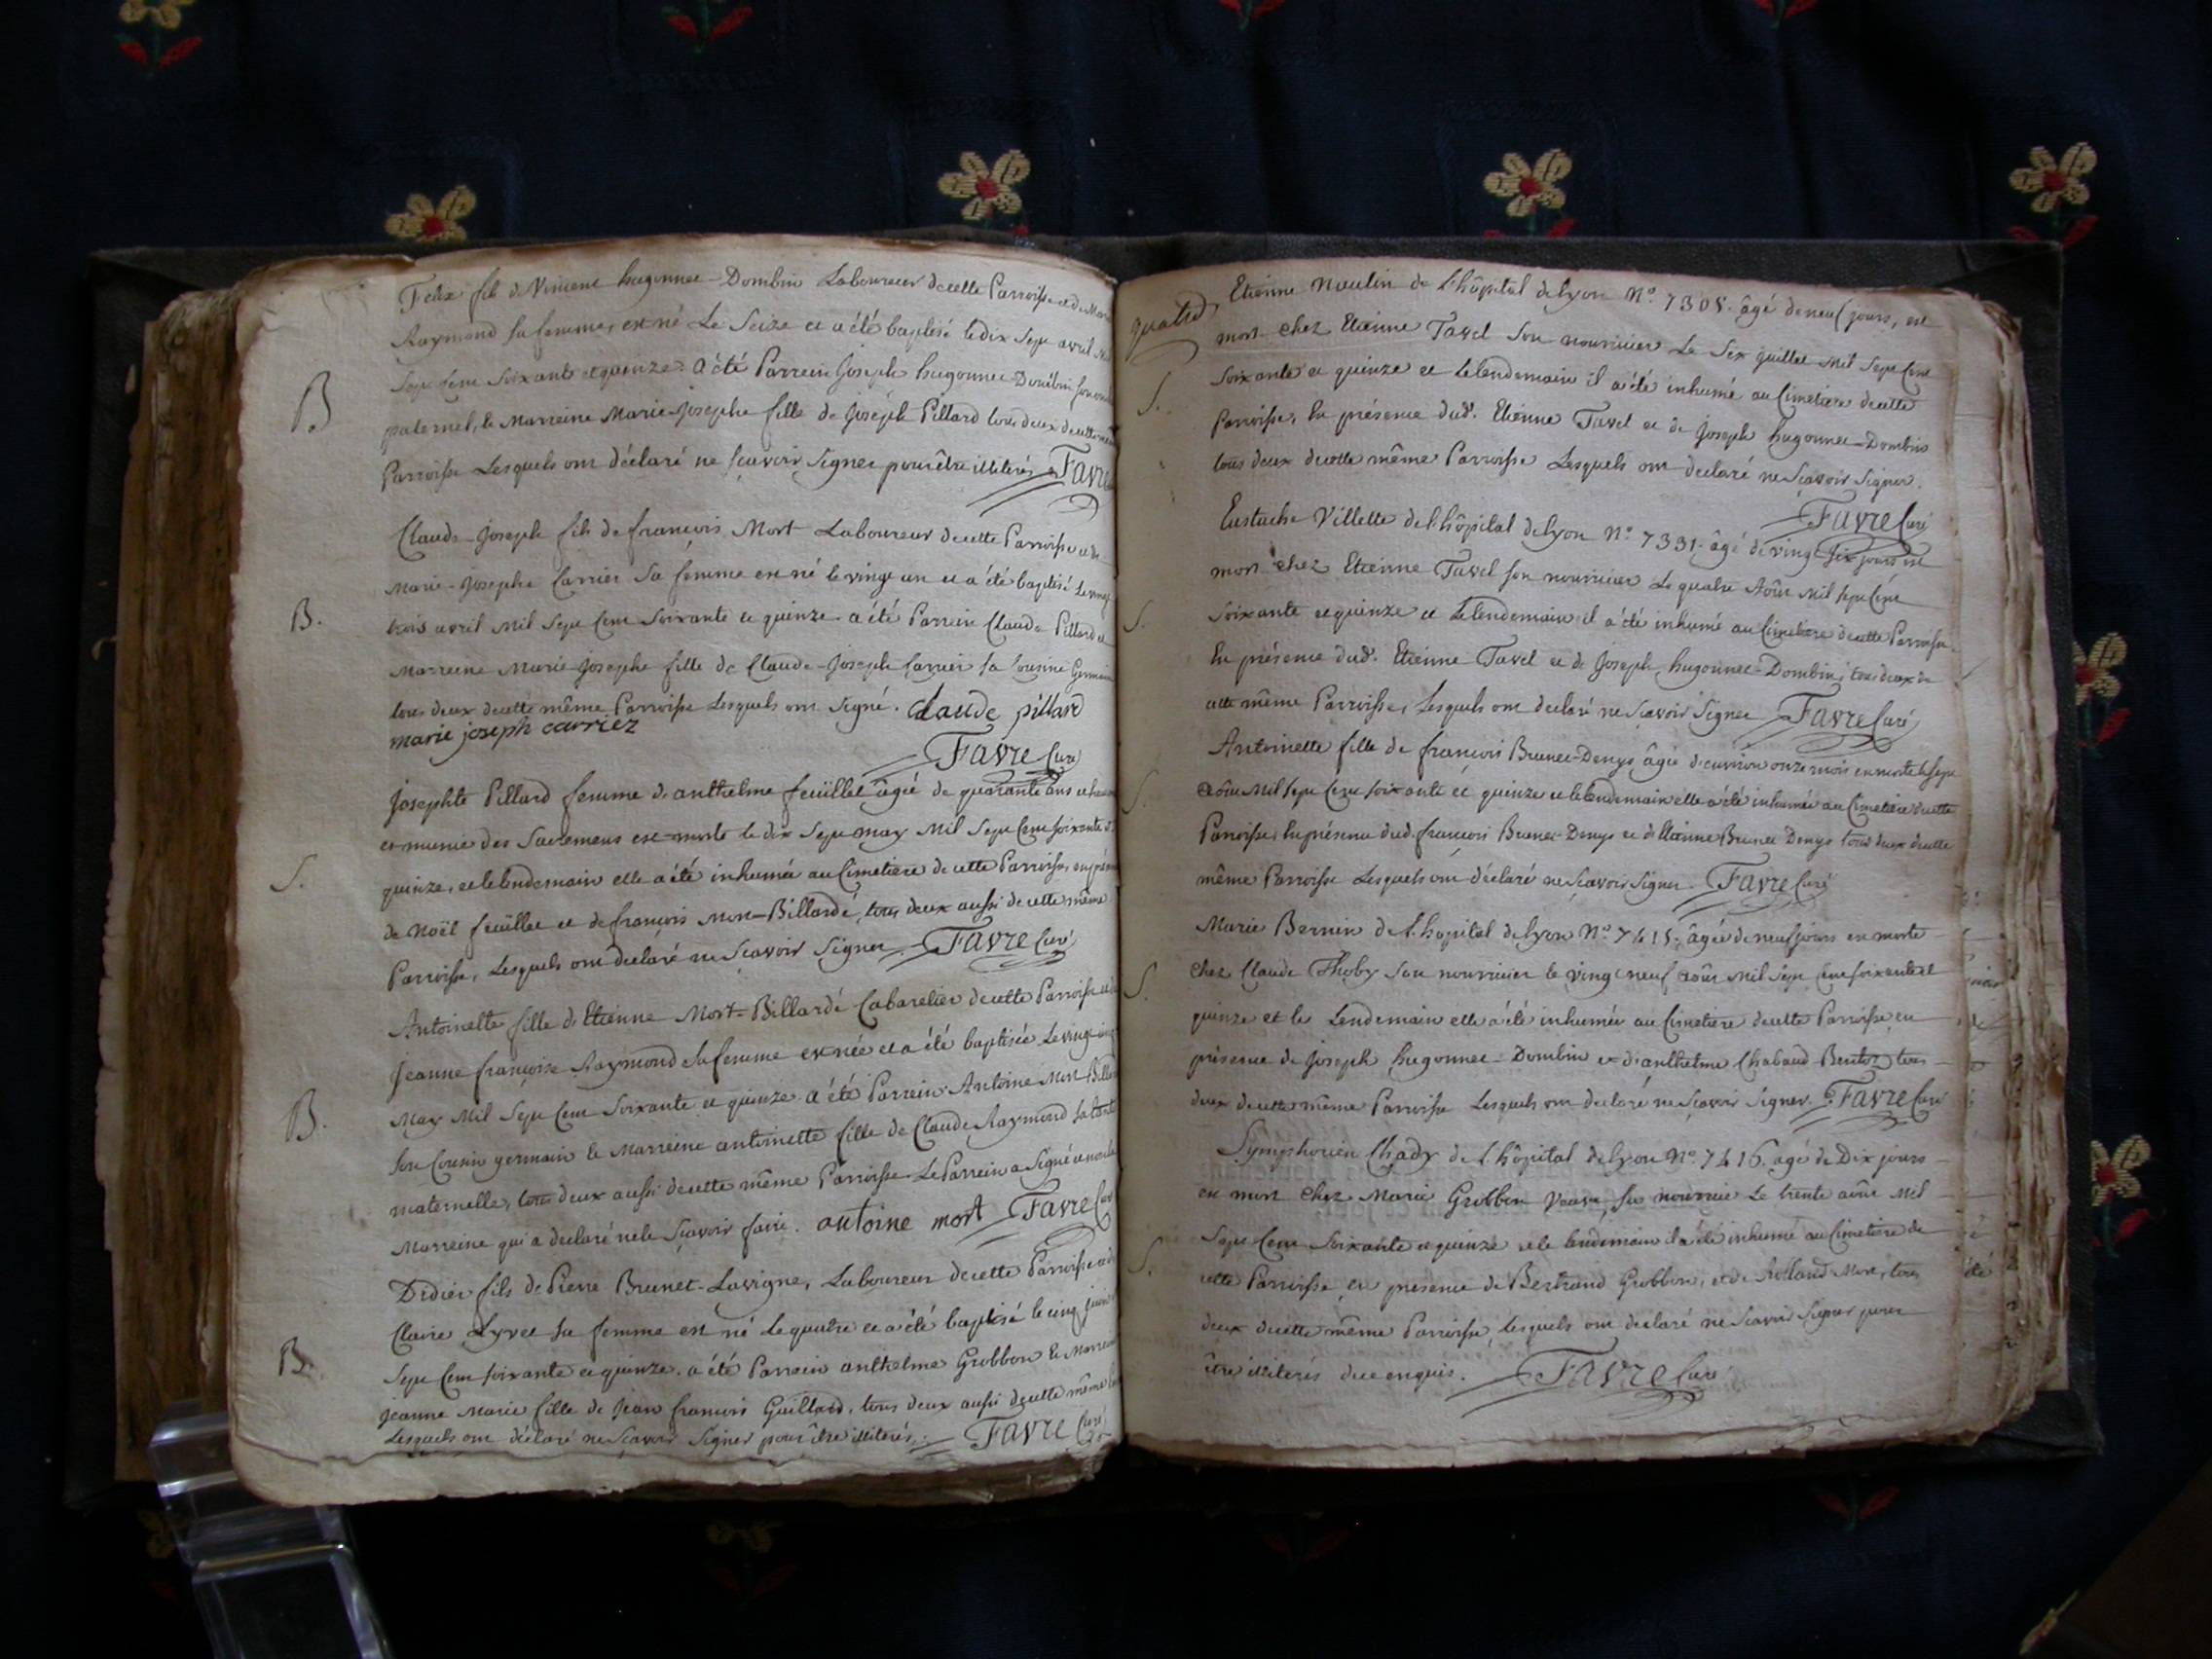 Felix fils de Vincent hugonnet-Dombin Laboureur decette Parroisse et de Marie
Raymond sa femme, est né Le Seize et a été baptisé le dix Sept avril Mil
B Sept Cent Soixante et quinze. a été Parrein Joseph hugonnet-Dombin son
paternel, et Marreine Marie-Josephe fille de Joseph Pillard tous deux decette
Parroisse Lesquels ont déclaré ne sçavoir Signer pour être illiterés Favre
Claude-Joseph fils de francois Mort Laboureur decette Parroisse et de
Marie-Josephe Carrier Sa femme est né le vingt un et a été baptisé Le vingt
B. trois avril Mil Sept Cent Soixante et quinze. a été Parrein Claude Pillard et
Marreine Marie-Josephe fille de Claude-Joseph Carrier sa Cousine Germaine
tous deux decette même Parroisse Lesquels ont Signé. claude pillard
marie joseph carriez
Favre Curé
Josephte Pillard femme d'anthelme feüillet âgée de quarante ans
et munie des Sacremens est morte le dix Sept may Mil Sept Cent soixante et
S. quinze, et lelendemain elle a été inhumée au Cimetiere de cette Parroisse, en présence
de Noël feüillet et de françois Mort-Billardé, tous deux aussi de cette même
Parroisse, Lesquels ont declaré ne Sçavoir Signer. Favre Curé
Antoinette fille d'Etienne Mort-Billardé Cabaretier decette Parroisse et de
Jeanne françoise Raymond Sa femme est née et a été baptisée Le vingt cinq
B. May Mil Sept Cent Soixante et quinze. a été Parrein Antoine Mort-Billardé
Son Cousin germain et Marreine antoinette fille de Claude Raymond sa tante
maternelle, tous deux aussi decette même Parroisse. Le Parrein a Signé et non la
Marreine qui a declaré nele Sçavoir faire. antoine mort Favre Curé
Didier fils de Pierre Brunet-Lavigne, Laboureur decette Parroisse et de
Claire Lyvet Sa femme est né Le quatre et a été baptisé le cinq juin
B. Sept Cent soixante et quinze. a été Parrein anthelme Grobbon et Marreine
Jeanne Marie fille de Jean francois Guillard, tous deux aussi decette même
Lesquels ont déclaré ne Sçavoir Signer pour être illiterés. Favre Curé
Etienne Moulin de L'hôpital de lyon N.° 7305. âgé de neuf jours, est
mort chez Etienne Tavel Son nourricier Le Six juillet Mil Sept Cent
S. Soixante et quinze et Lelendemain il a été inhumé au Cimetiere decette
Parroisse, En présence dud.t Etienne Tavel et de Joseph hugonnet-Dombin
tous deux decette même Parroisse Lesquels ont declaré ne Sçavoir Signer.
Favre Curé
Eustache Villette de l'hôpital de lyon N.° 7331. âgé de vingt six jours est
mort chez Etienne Tavel son nourricier Le quatre Aôut Mil sept Cent
S. Soixante et quinze et Lelendemain il a été inhumé au Cimetiere decette Parroisse.
En présence dud.t Etienne Tavel et de Joseph hugonnet-Dombin, tous deux de
cette même Parroisse, Lesquels ont declaré ne Sçavoir Signer Favre Curé
Antoinette fille de françois Brunet-Denys âgée d'environ onze mois est morte le sept
S. aôut Mil sept Cent soixante et quinze et le lendemain elle a été inhumée au Cimetiere decette
Parroisse, En présence dud. françois Brunet-Denys et d'Etienne Brunet Denys tous deux decette
même Parroisse Lesquels ont déclaré ne Sçavoir Signer. Favre Curé
Marie Bernin de l'hôpital de lyon N.° 7415. âgée de neuf jours est morte
S. chez Claude Thoby Son nourricier le vingt neuf aôut Mil Sept Cent soixante et
quinze et le Lendemain elle a été inhumée au Cimetiere decette Parroisse, en
présence de Joseph hugonnet-Dombin et d'anthelme Chabaud tous
deux decette même Parroisse Lesquels ont declaré ne Sçavoir Signer. Favre Curé
Symphorien Chady de l'hôpital de lyon N.° 7416. agé de Dix jours
est mort chez Marie Grobbon Veuve, sa nourrice Le trente aôut Mil
S. Sept Cent Soixante et quinze et le lendemain il a été inhumé au Cimetiere de
cette Parroisse, en presence de Bertrand Grobbon, et de Mort, tous
deux decette même Parroisse, Lesquels ont declaré ne Sçavoir Signer pour
être illiterés de ce enquis. Favre Curé